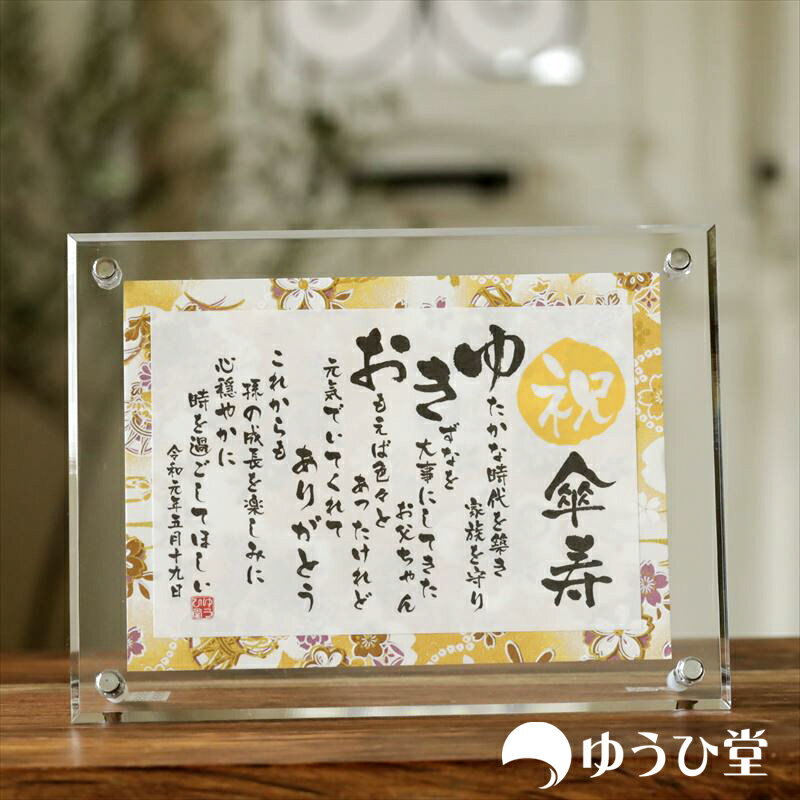 祝
傘寿
ゆたかな時代を築き
家族を守り
きずなを
大事にしてきた
お父ちゃん
おもえば色々と
あったけれど
元気でいてくれて
ありがとう
これからも
孫の成長を楽しみに
心穏やかに
時を過ごしてほしい
令和元年五月十九日
ゆうひ堂
ゆうひ堂